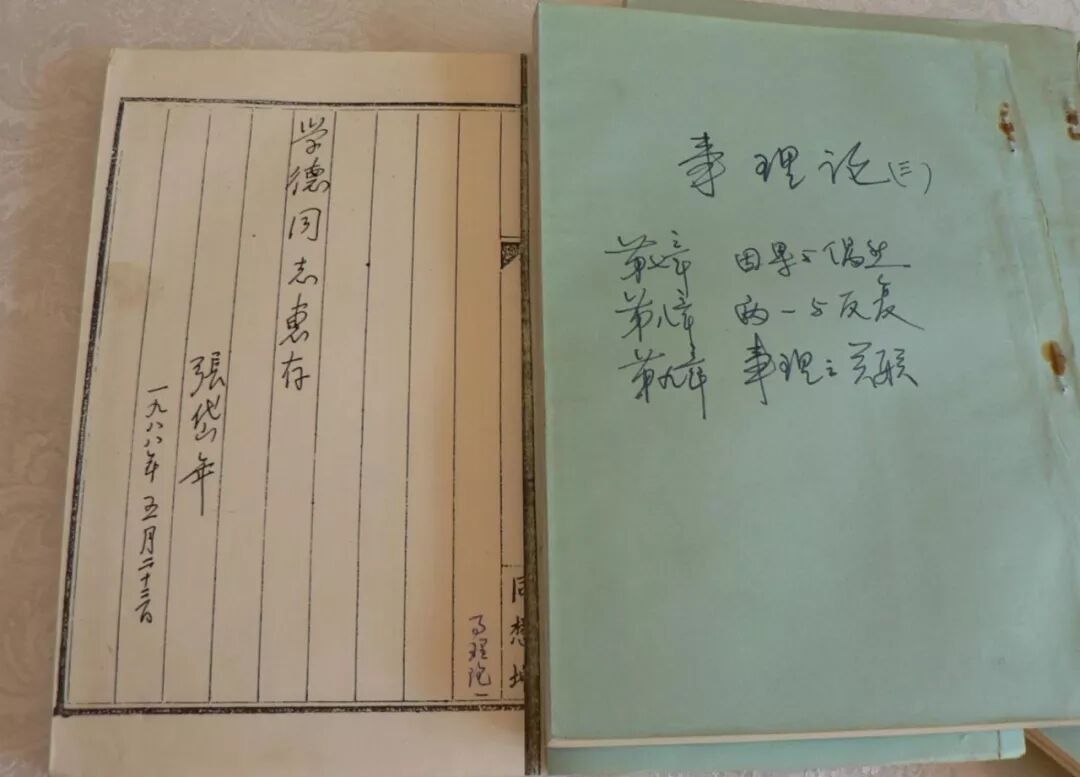 学德同志惠存
張岱年
一九八八年五月二十三日
同想
事理论(三)
第七章 因果与偶然
第八章 两一与反复
第九章 事理之关联